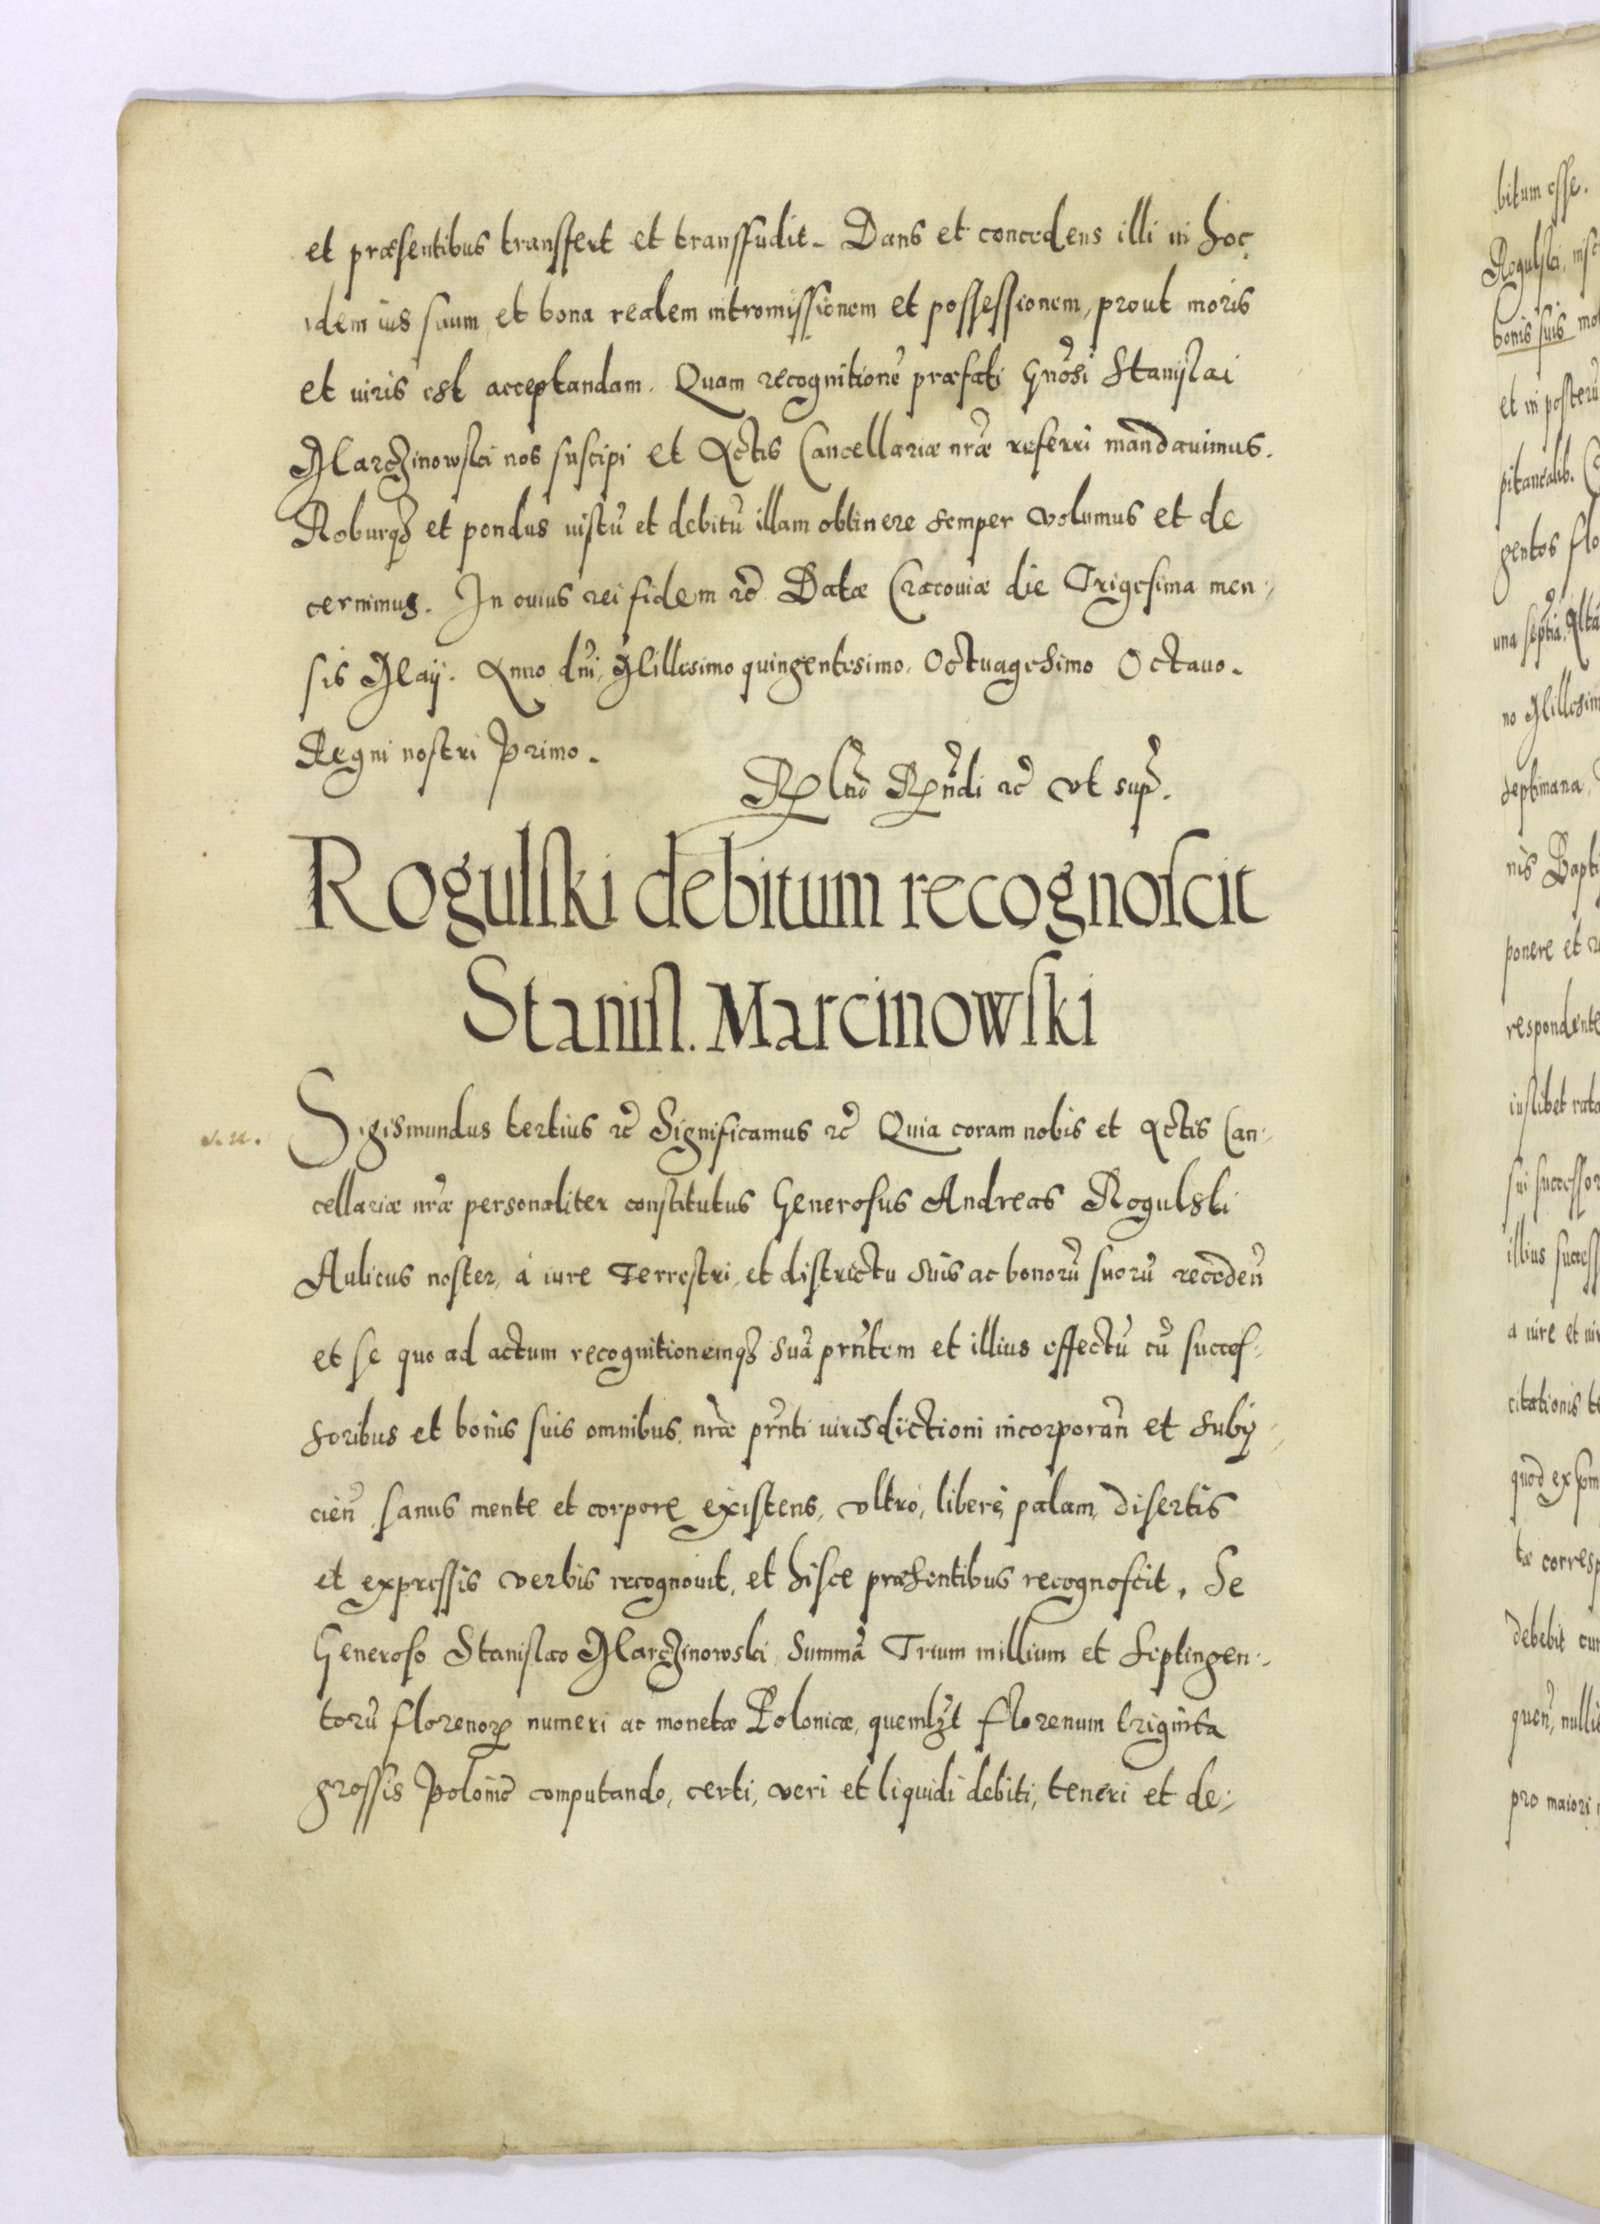 et præsentibus transfert et transfudit. Dans et concedens illi in hoc
idem ius suum, et bona realem intromissionem et possessionem, prout moris
et iuris est acceptandam. Quam recognitionē præfati Gnōsi Stanislai
Marczinowski nos suscipi et Actis Cancellariæ nræ referri mandauimus.
Roburq3 et pondus iustū et debitū illam obtinere semper volumus et de
cernimus. In cuius rei fidem rc̃ Datæ Cracouiæ die Trigesima men-
sis Maij. Anno dni, Millesimo quingentesimo, Octuagesimo Octauo.
Regni nostri Primo.
rc̃ vt sup.
Rogulſki debitum recognoſcit
Staniſl. Marcinowſki
Sigismundus tertius rc̃ Significamus rc̃ Quia coram nobis et Actis Can-
cellariæ nræ personaliter constitutus Generosus Andreas Rogulski
Aulicus noster, à iure Terrestri, et districtu suis ac bonorū suorū recedeñ
et se quo ad actum recognitionemq3 suā prñtem et illius effectū cū succes-
soribus et bonis suis omnibus, nræ prñti iurisdictioni incorporañ et subij-
cieñ, sanus mente et corpore existens, vltro, liberè, palam, disertis
et expressis verbis recognouit, et hisce præsentibus recognoscit, Se
Generoso Stanislao Marczinowski, Summā Trium millium et Septingen-
torū florenorꝝ numeri ac monetæ Polonicæ, quemlꝫt florenum triginta
grossis Polonic̃ computando, certi, veri et liquidi debiti, teneri et de-
bitum esse.
Rogulski,
bonis suis
et in posterū
ponere et
respondente
debebit
pro maiori